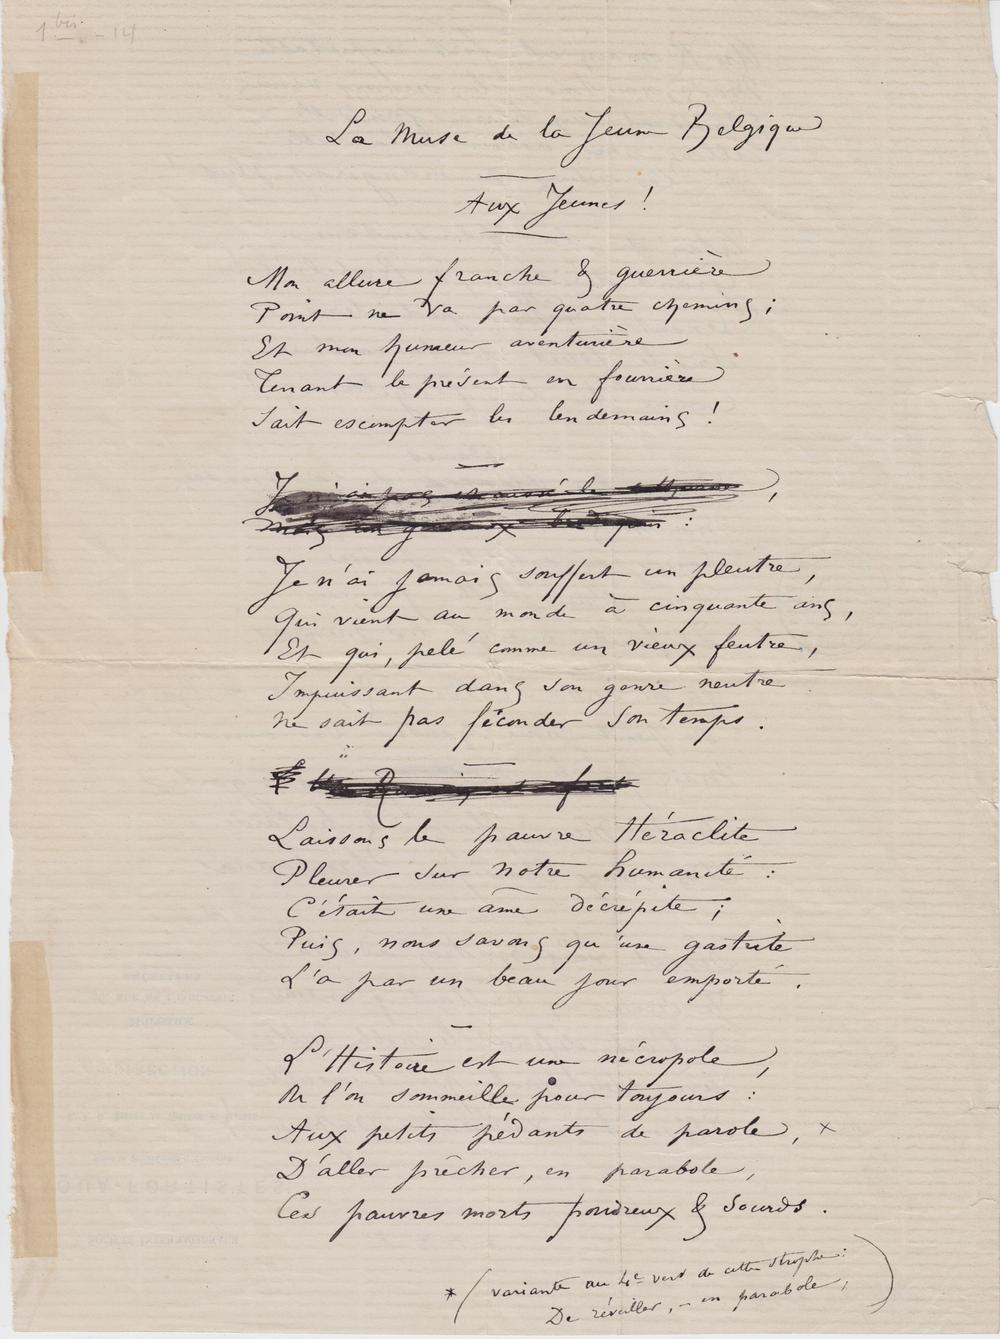 1 bis - 14
La Muse de la Jeune Belgique
Aux Jeunes !
Mon allure franche & guerrière
Point ne va par quatre chemins ;
Et mon humeur aventurière
Tenant le présent en fourrière
Sait escompter les lendemains !
Je n'ai pas
Je n'ai jamais souffert un pleutre,
Qui vient au monde à cinquante ans,
Et qui, pelé comme un vieux feutre,
Impuissant dans son genre neutre
Ne sait pas féconder son temps.
Laissons le pauvre Héraclite
Pleurer sur notre humanité :
C'était une âme décrépite ;
Puis, nous savons qu'une gastrite
L'a par un beau jour emporté.
L'Histoire est une nécropole,
Où l'on sommeille pour toujours :
Aux petits pédants de parole, ×
D'aller prêcher, en parabole,
Ces pauvres morts poudreux & sourds.
* (variante au 4e vers de cette strophe :
De réveiller, - en parabole,)